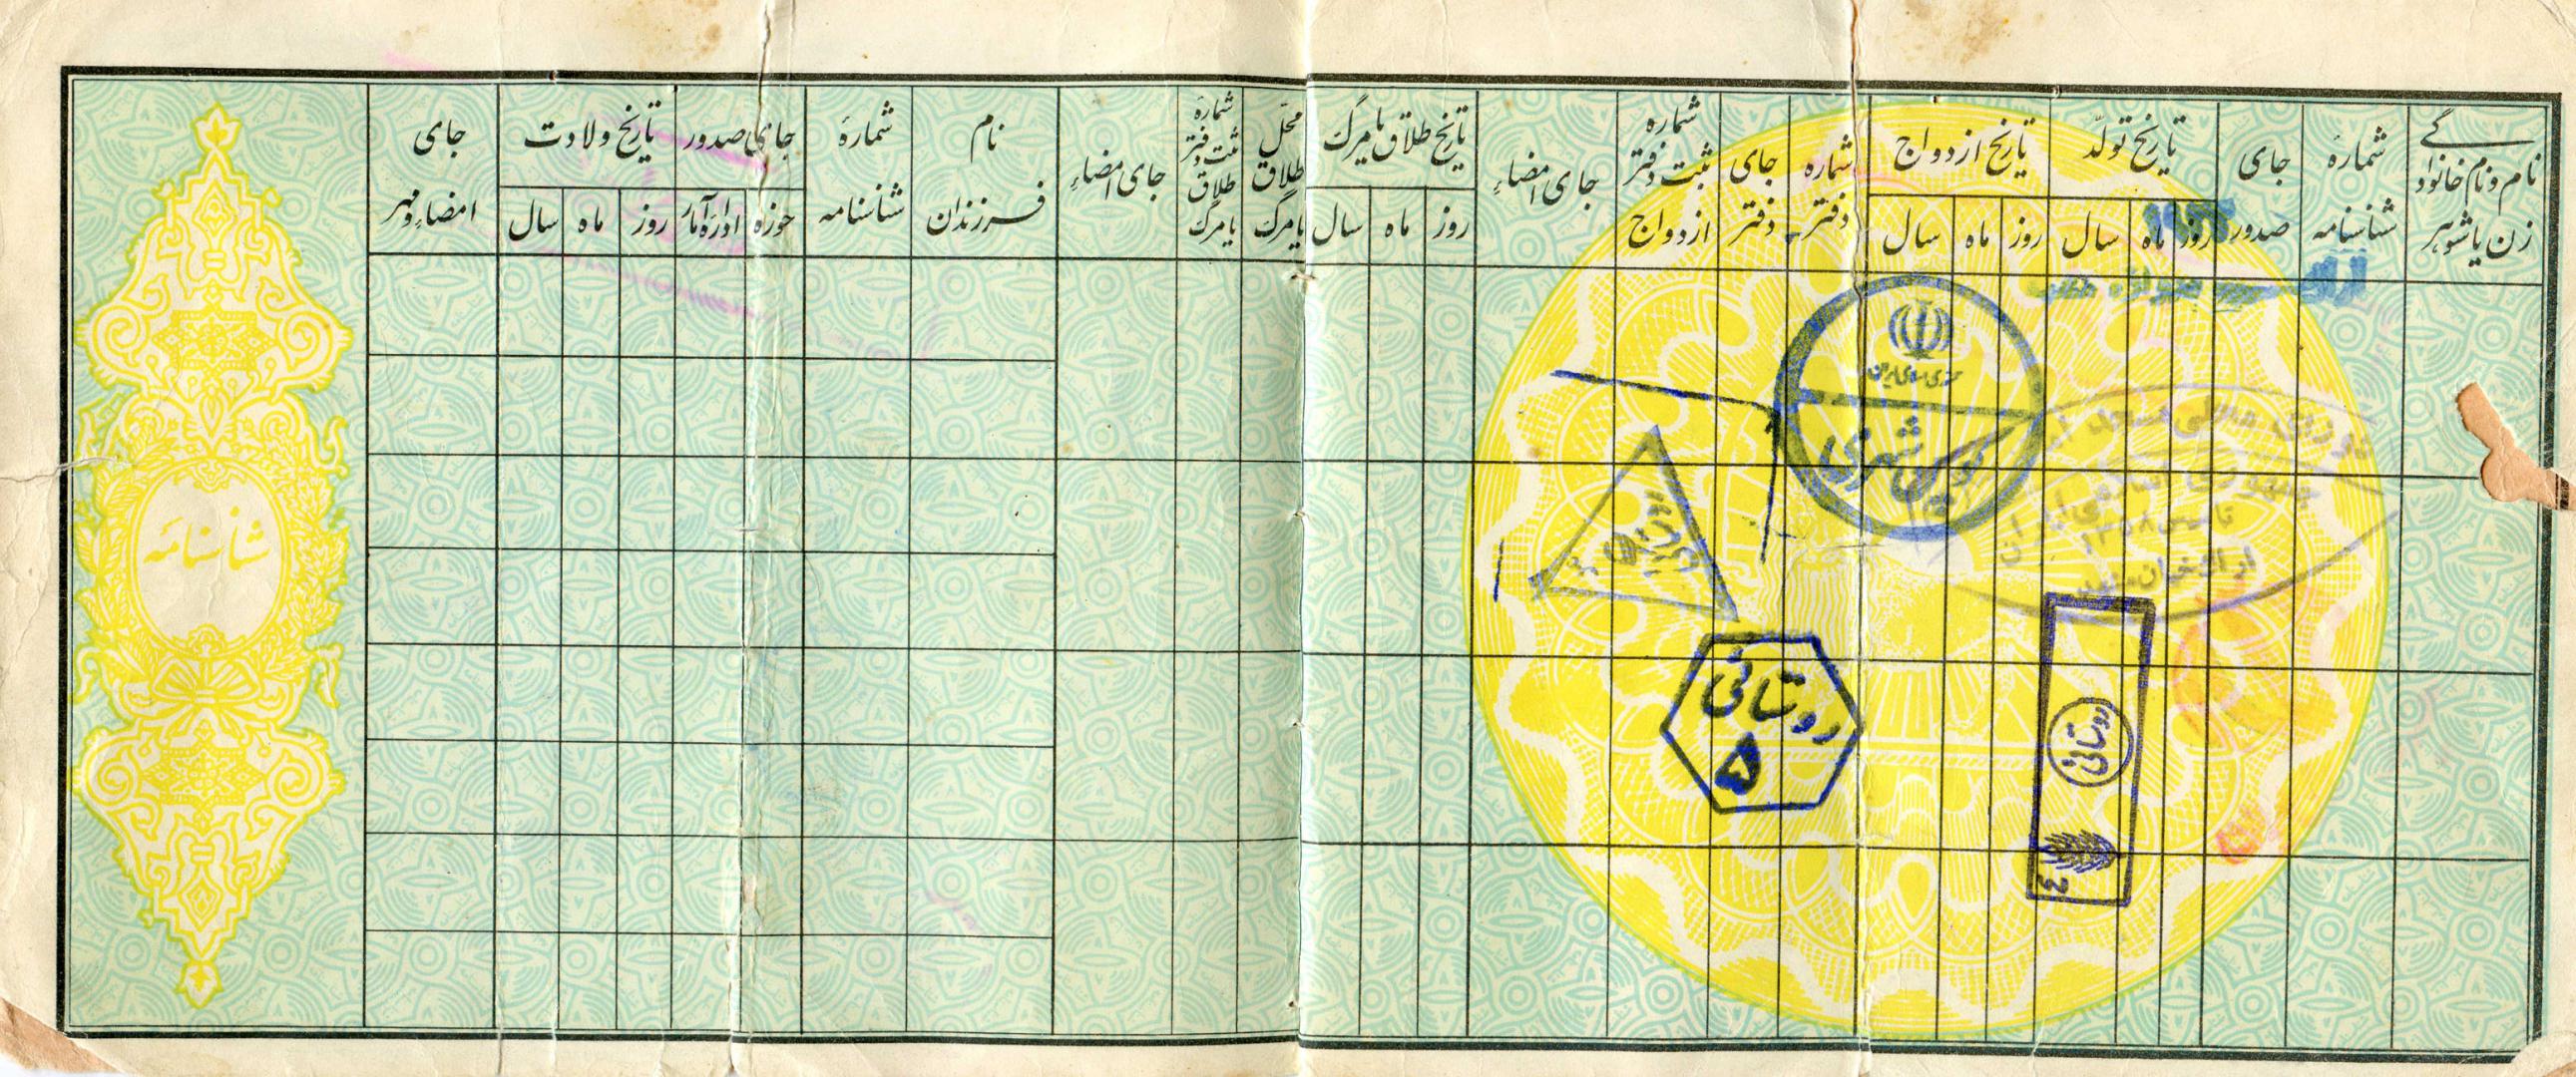 نام و نام خانوادگے
زن یا شوهر
شمارهٔ
شناسنامه
جای
صدور
تاریخ تولّد
روز
ماه
سال
تاریخ ازدواج
روز
ماه
سال
شماره
دفتر
جای
دفتر
شماره
ثبت دفتر
ازدواج
جای امضاء
تاریخ طلاق یا مرگ
روز
ماه
سال
محلّ
طلاق
یا مرگ
شماره
ثبت دفتر
طلاق
یا مرگ
جای امضاء
نام
فرزندان
شمارهٔ
شناسنامه
جای صدور
حوزه
ادارۀ آمار
تاریخ ولادت
روز
ماه
سال
جای
امضاء و مهر
شناسنامه
جمهوری اسلامی ایران
کوپن شهری
جمهوری اسلامی ایران
تاسیس ۱۳۵۸
روستائی
۵
روستائی
٤